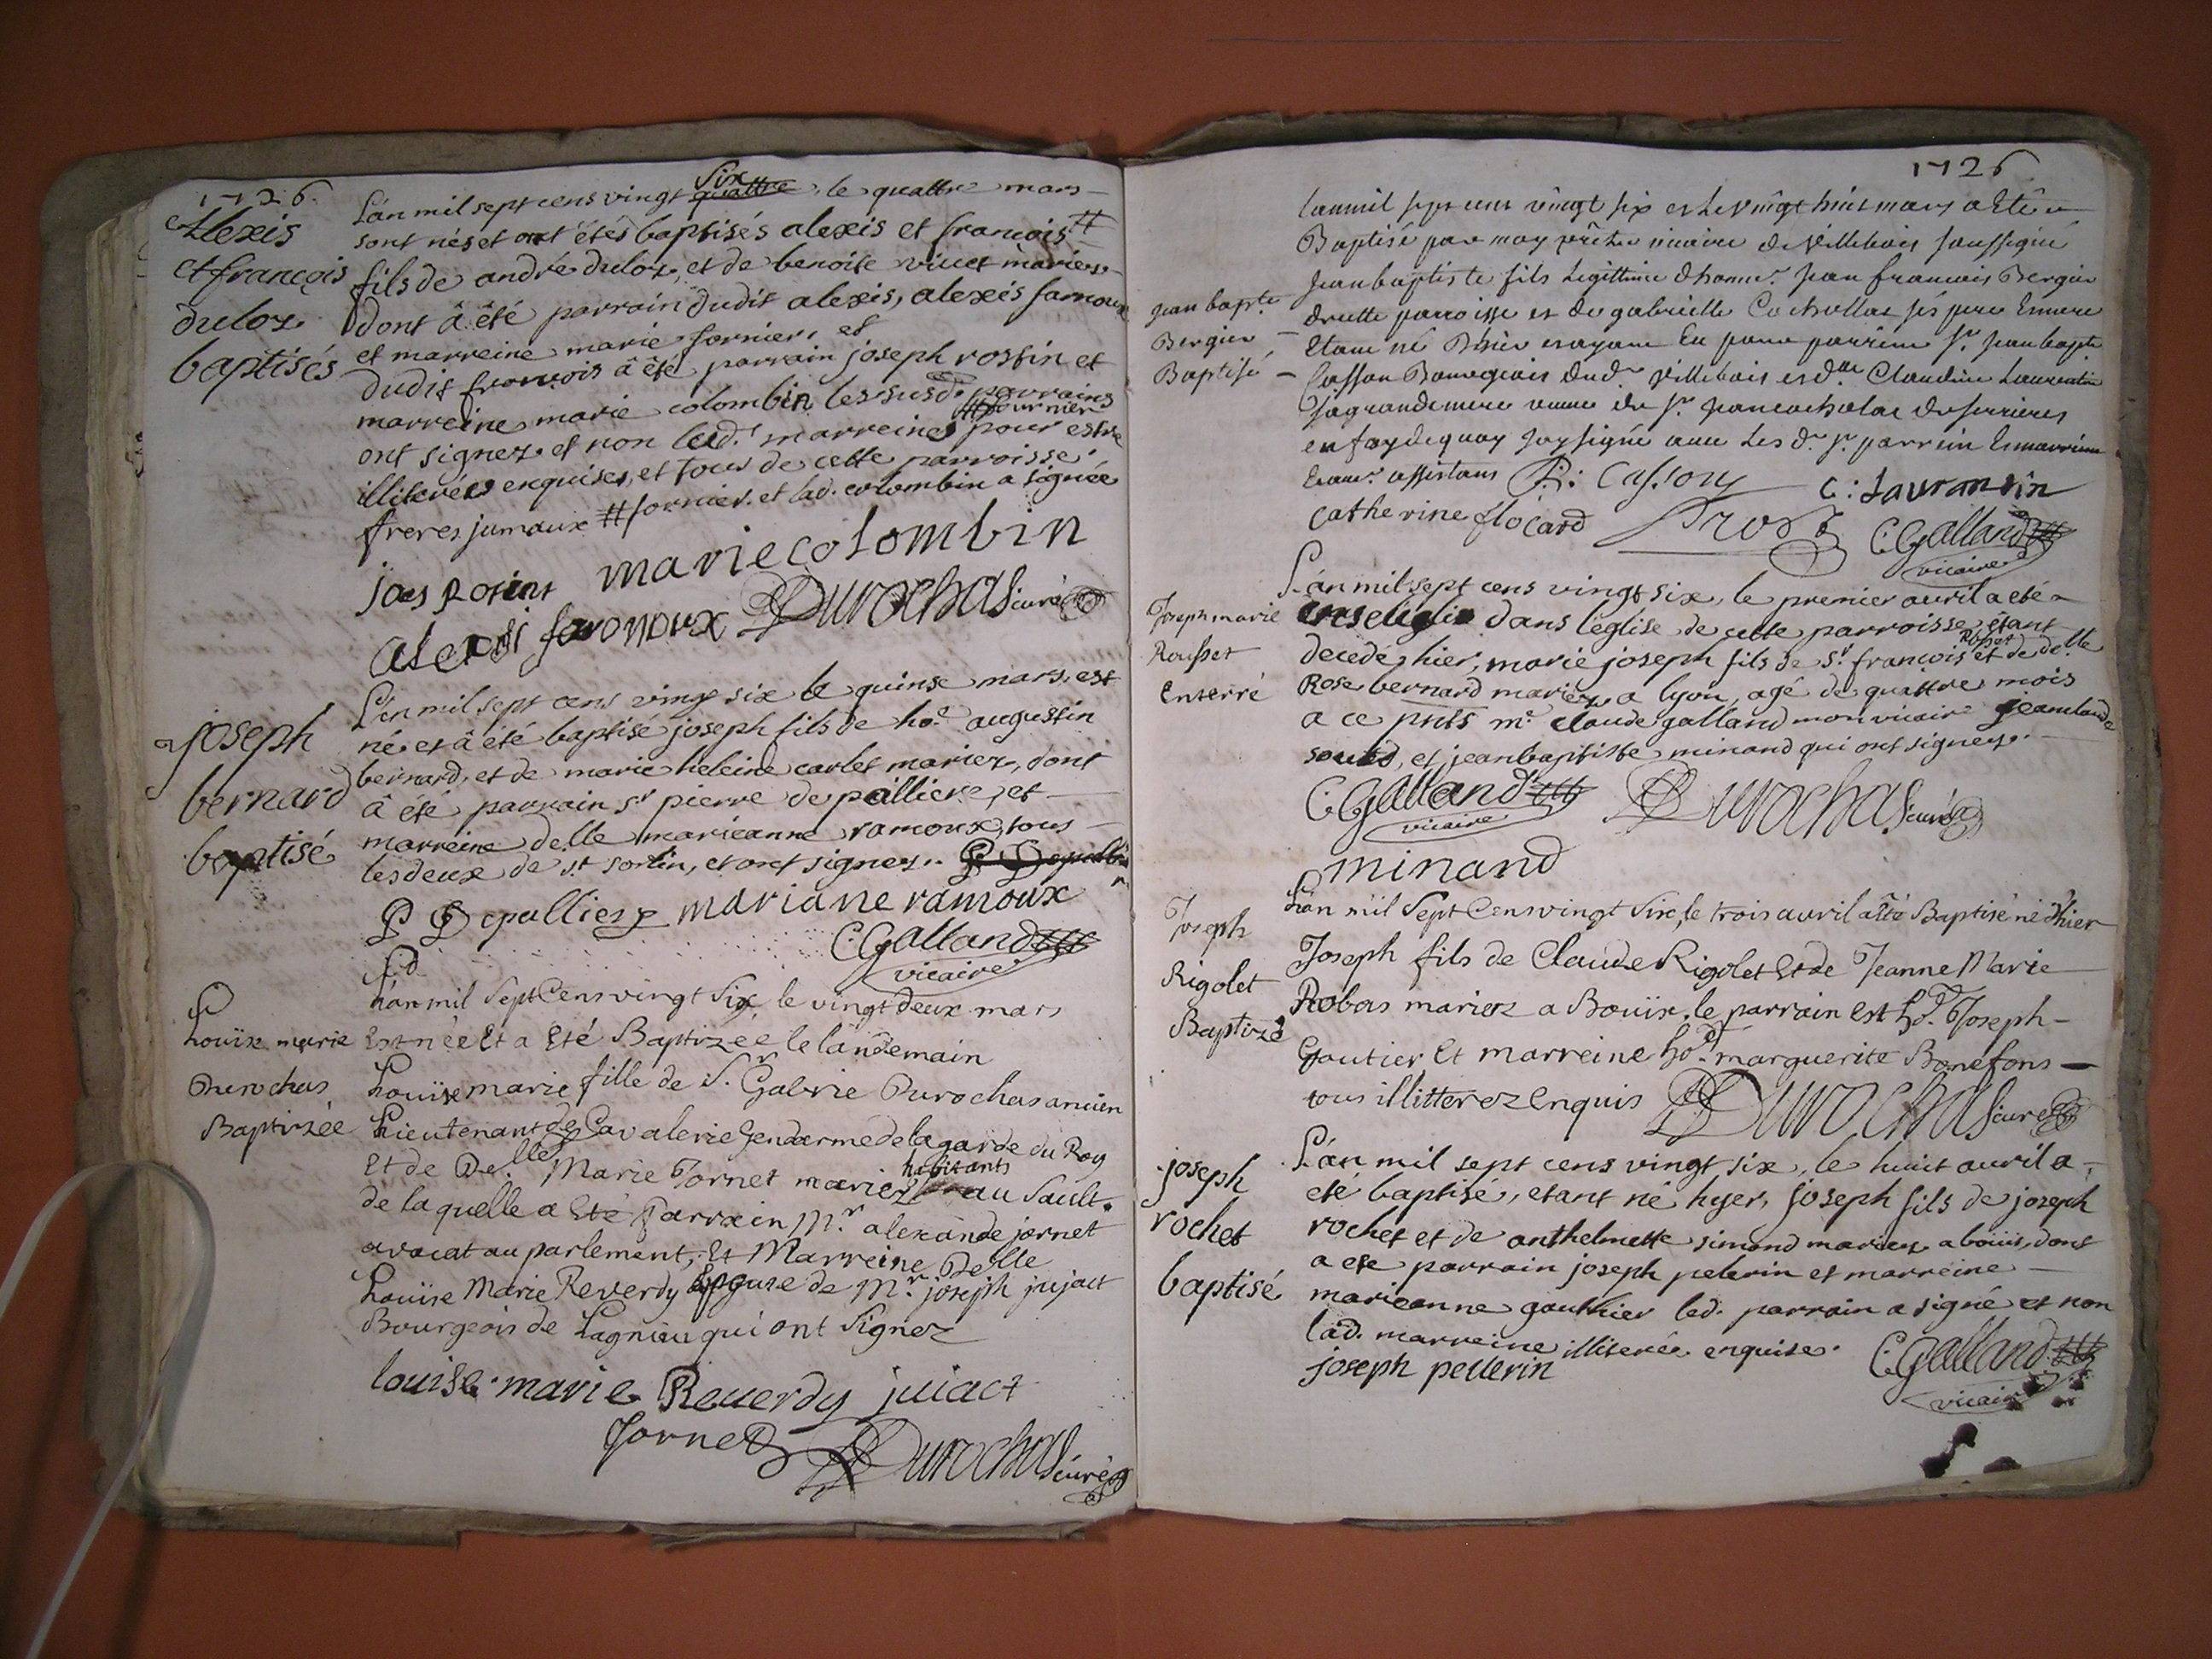 1726.
Alexis
et françois
duloz
baptisés
L'an mil sept cens vingt quattre six, le quattre mars
sont nés et ont étés baptisés alexis et francois #
fils de andré duloz et de benoite vivet mariez
dont â êté parrain dudit alexis, alexis
et marreine marie fornier, et
dudit francois â êté parrain joseph rossin et
marreine marie colombin les susd. parrains
ont signez et non lad. marreine # fournier pour estre
illiterée enquises, et tous de cette parroisse.
# freres jumaux # fornier. et lad. colombin a signée
marie colombin
joes Rosint
alexsi DuRochas curé
joseph
bernard
baptisé
L'en mil sept cens vingt six le quinse mars, est
né et â été baptisé joseph fils de ho.e augustin
bernard, et de marie heleine carlet mariez, dont
â eté parrain sr pierre de pallieres, et
marreine delle marieanne ramoux, tous
les deux de st sorlin, et ont signez.
P Depallierz mariane ramoux
C: Galland
vicaire
Louïse marie
Durochas
Baptizée
Lán mil Sept Cens vingt Six, le vingt deux mars
Est née Et a Eté Baptizée le landemain
Louïse marie fille de Sr. Gabrie Durochas ancien
Lieutenant de Cavalerie Gendarme de la garde du Roy
Et de Delle Marie Jornet mariez habitants au Sault.
de laquelle a Eté Parrain Mr. alexande jornet
avocat au parlement, Et Marreine Delle
Louïse Marie Reverdy Epouse de Mr. joseph jujact
Bourgeois de Lagnieu qui ont Signez
louise marie Reverdy juiact
Jornet DuRochas curé
1726
Jean bapte
Bergier
Baptisé
Lanmil sept cens vingt six et le vingt huit mars a Eté
Baptisé par moy prêtre vicaire de villebois soussigné
Jean baptiste fils Legittime d'honer. Jean francois Bergier
dicelle parroisse et de gabrielle Cochollat ses pere Et mere
Etant né Dhier et ayant Eu pour parrein Sr. Jean bapte
Casson Bourgeois dud. villebois et dlle Claudine Laurentin
sa grandemere veuve de Sr. Jean cocholat de serrieres
en foy de quoy j'ay signé avec Les d. Sr. parrein Et marreine
Et autr. assistans R: Casson C: Laurantin
Catherine flocard Prost C: Galland
vicaire
Joseph marie
Rousset
Enterré
L'án mil sept cens vingt six, le premier auril a eté
enseueli dans l'église de cette parroisse, étant
decedé hier, marie joseph fils de Sr. francois Rosset et de delle
Rose bernard mariez a lyon, agé de quattre mois
a ce pnts mr. claude galland mon vicaire jeanclaude
souted, et jeanbaptiste minand qui ont signez.
C: Galland
vicaire DuRochas curé
minand
Joseph
Rigolet
Baptizé
Lán mil Sept Cens vingt Six, le trois avril a eté Baptisé né d'hier
Joseph fils de Claude Rigolet Et de Jeanne Marie
Robas mariez a Bouïs, le parrain est hd. Joseph
Gautier Et marreine ho.e marguerite Bonefons
tous illitterez Enquis DuRochas curé
joseph
rochet
baptisé
L'án mil sept cens vingt six, le huit avril a
eté baptisé, etant né hyer, joseph fils de joseph
rochet et de anthelmette simond mariez a boüis, dont
a ete parrain joseph pelerin et marreine
marieanne gauthier led. parrain a signé et non
lad. marreine illiterée enquise.
joseph pellerin C: Galland
vicaire